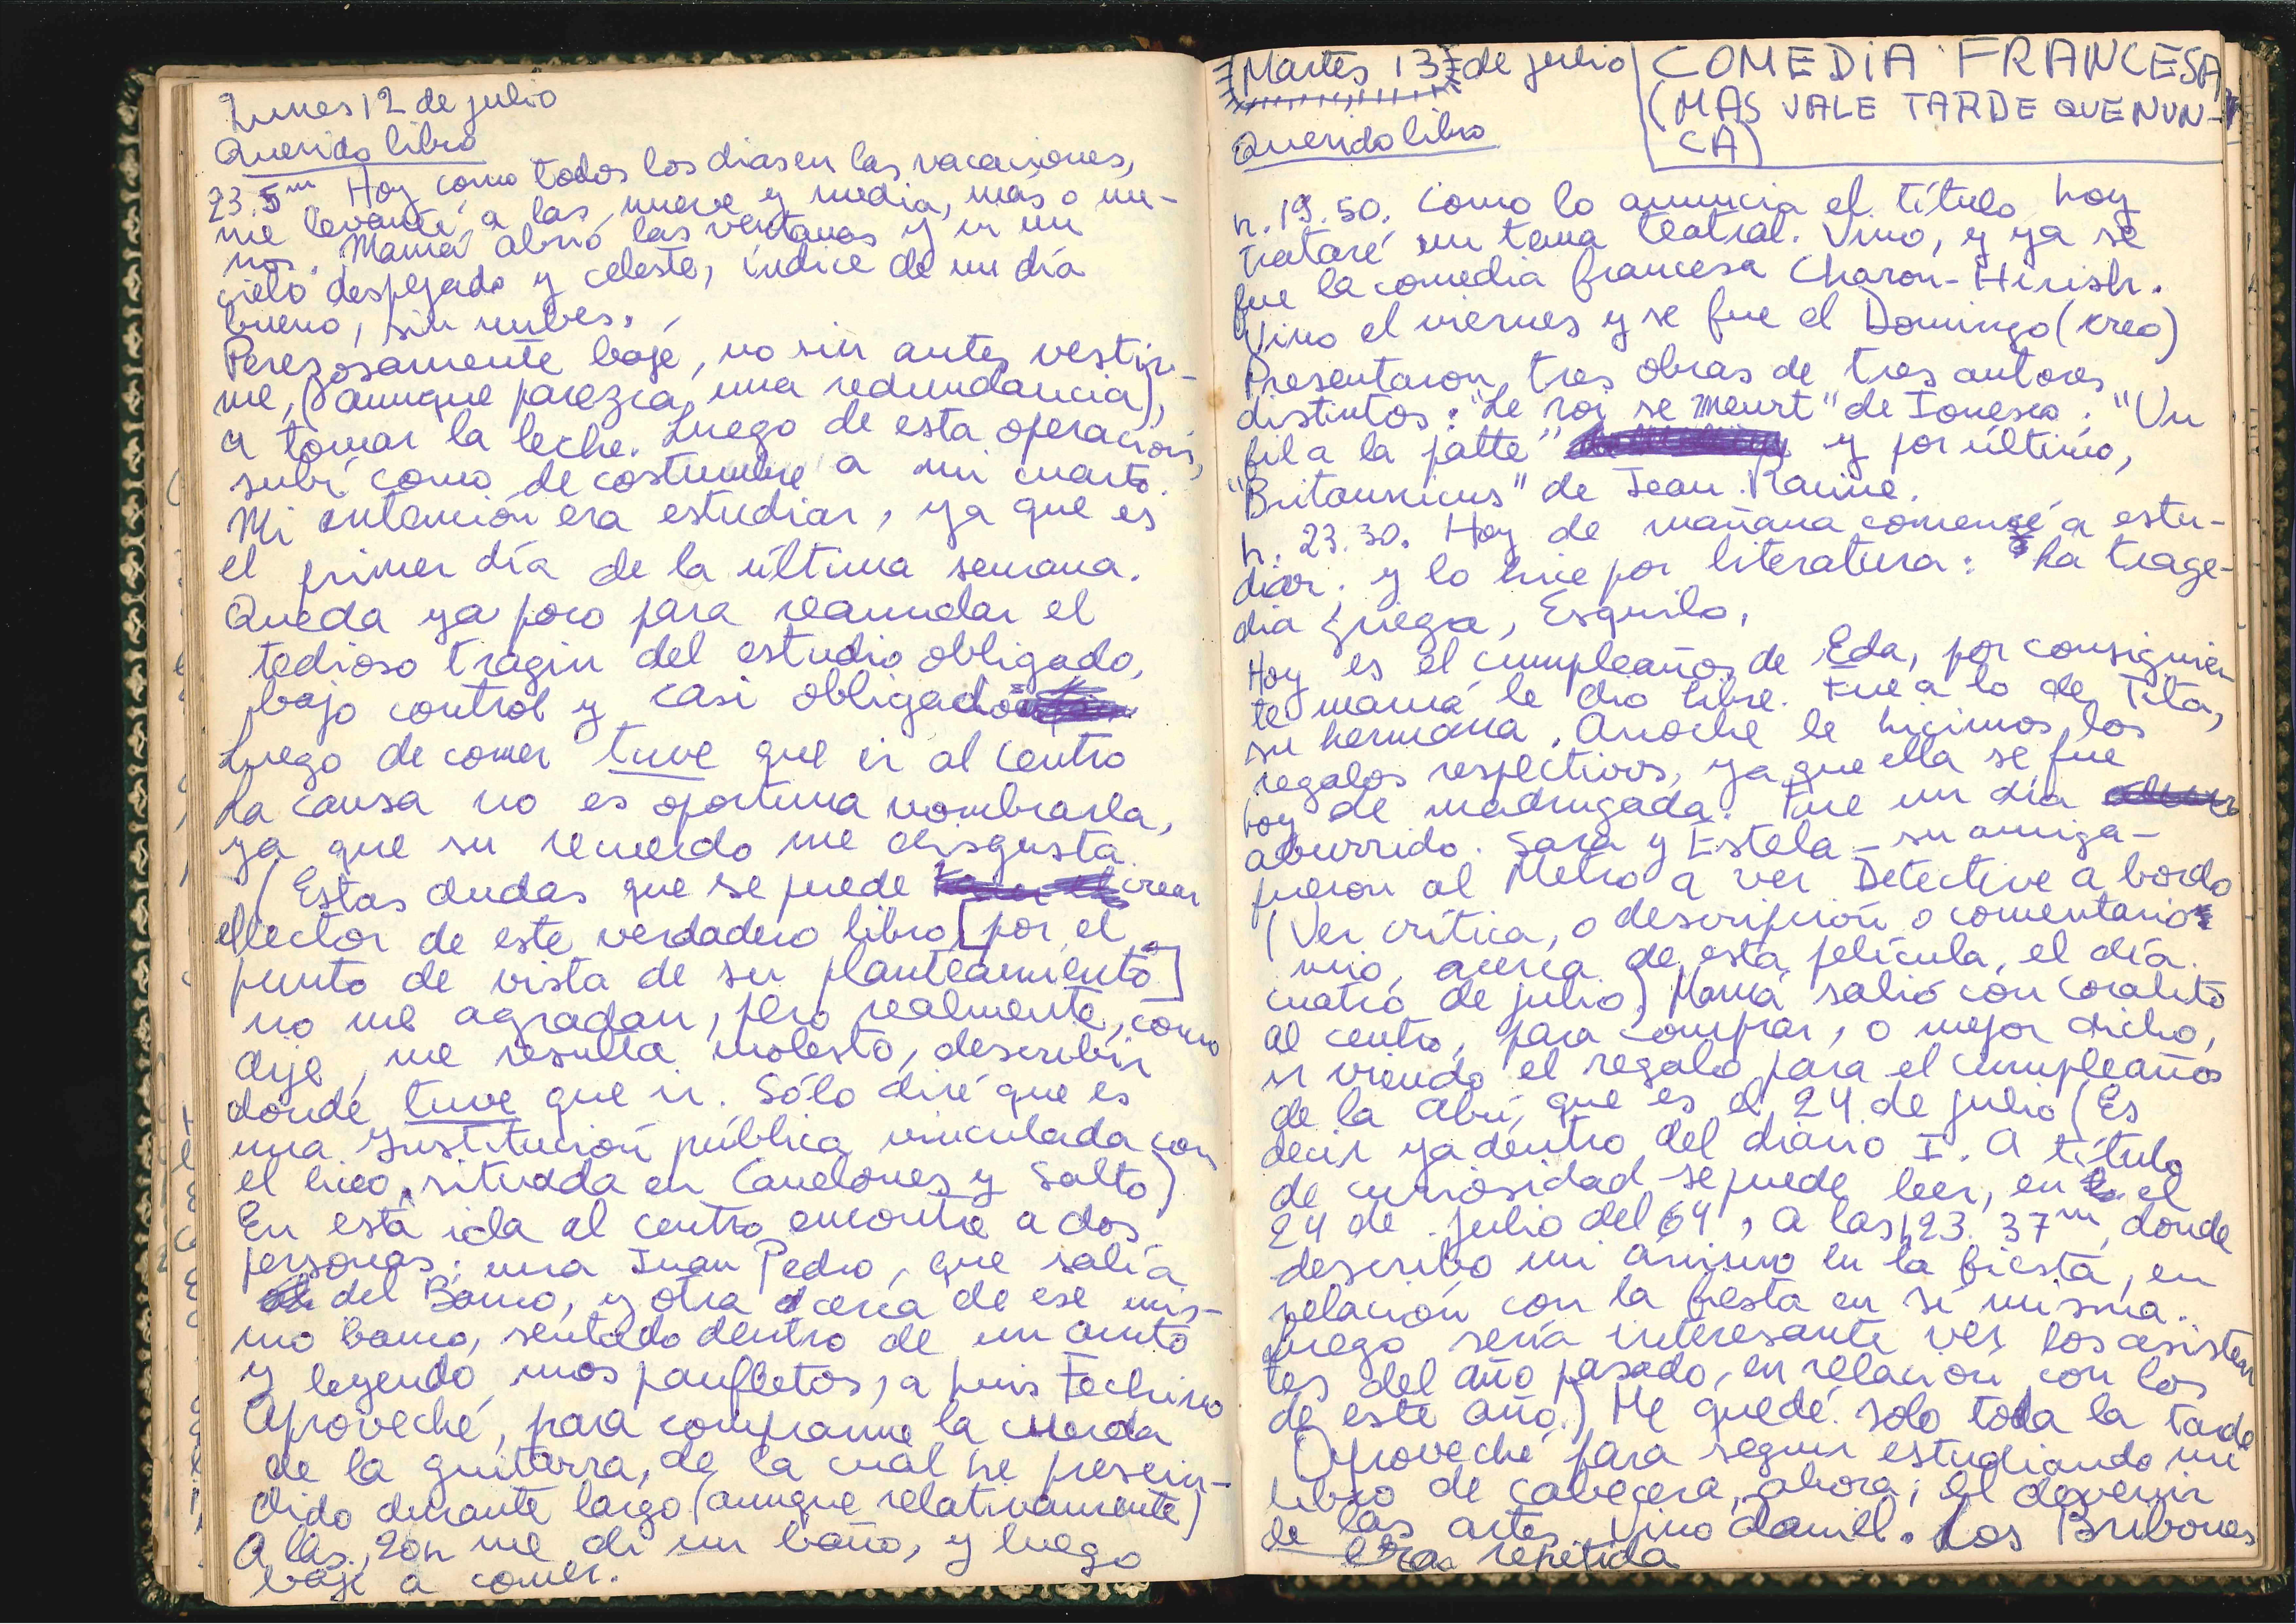 Lunes 12 de julio
Querido libro
23.5m Hoy, como todos los dias en las vacaciones,
me levanté a las nueve y media, más o me-
nos. Mamá abrió las ventanas y vi un
cielo despejado y celeste, índice de un día
bueno, sin nubes.
Perezosamente bajé, no sin antes vestir-
me, (aunque parezca una redundancia),
a tomar la leche. Luego de esta operación,
subí como de costumbre a mi cuarto.
Mi intención era estudiar, ya que es
el primer día de la última semana.
Queda ya poco para reanudar el
tedioso tragin del estudio obligado,
bajo control y casi obligado
Luego de comer tuve que ir al centro
La causa no es oportuna nombrarla,
ya que su recuerdo me disgusta.
(Estas dudas que se puede crear
el lector de este verdadero libro [por el
punto de vista de su planteamiento]
no me agradan, pero realmente, como
dije, me resulta molesto, describir
donde tuve que ir. Sólo diré que es
una Institución pública vinculada con
el liceo, situada en Canelones y Salto)
En esta ida al centro encontré a dos
personas: una Juan Pedro, que salía
del Banco, y otra cerca de ese mis-
mo banco, sentado dentro de un auto
y leyendo unos panfletos, a Luis Fechino
Aproveché, para comprarme la cuerda
de la guitarra, de la cual he prescin-
dido durante largo (aunque relativamente)
A las 20h me di un baño, y luego
bajé a comer.
Martes 13 de julio
COMEDIA FRANCESA
(MAS VALE TARDE QUE NUN-
CA)
Querido libro
h. 19.50. Como lo anuncia el título, hoy
trataré un tema teatral. Vino, y ya se
fue la comedia francesa Charon-Hirish.
Vino el viernes y se fue el Domingo (creo)
Presentaron tres obras de tres autores
distintos: "Le roi se meurt" de Ionesco. "Un
fil a la patte" y por último,
"Britannicus" de Jean Racine.
h. 23.30. Hoy de mañana comencé a estu-
diar. y lo hice por literatura: La trage-
dia griega, Esquilo.
Hoy es el cumpleaños de Eda, por consiguien-
te mamá le dio libre. Fue a lo de Tita,
su hermana. Anoche le hicimos los
regalos respectivos, ya que ella se fue
hoy de madrugada. Fue un día
aburrido. Sara y Estela - su amiga -
fueron al Metro a ver Detective a bordo
(Ver crítica, o descripción o comentario
mío, acerca de esta película, el día
cuatro de julio) Mamá salió con Coralito
al centro, para comprar, o mejor dicho,
ir viendo el regalo para el cumpleaños
de la Abu, que es el 24 de julio (Es
decir ya dentro del diario I. A título
de curiosidad se puede leer, en el
24 de julio del 64, a las h23. 37m, donde
describo mi ánimo en la fiesta, en
relación con la fiesta en sí misma.
Luego sería interesante ver los asisten-
tes del año pasado, en relación con los
de este año.) Me quedé solo toda la tarde
Aproveché para seguir estudiando mi
libro de cabecera, ahora; el devenir
de las artes. Vino Daniel. Los Bribones
era repetida